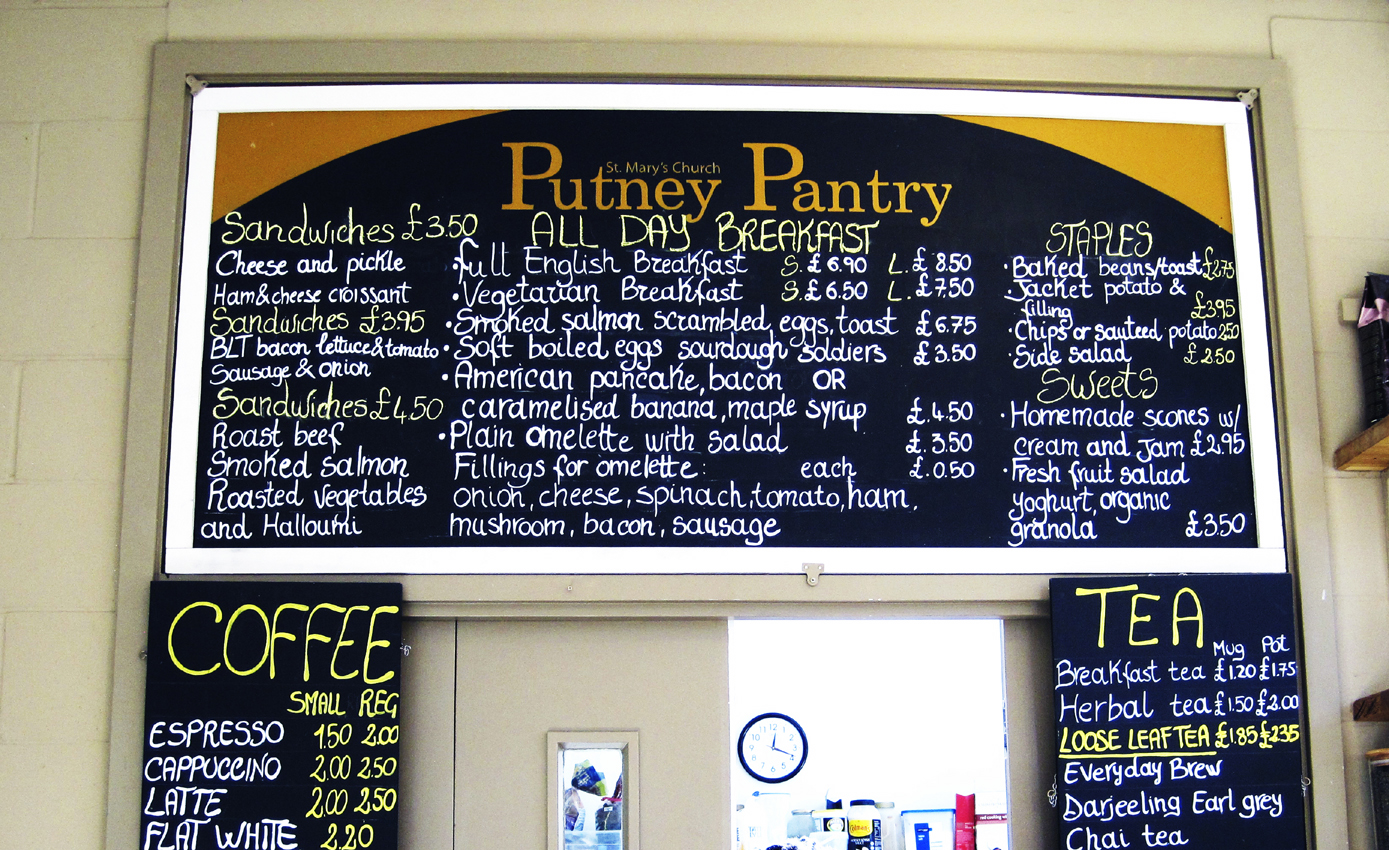 St. Mary's Church
Putney Pantry
Sandwiches £3.50
Cheese and pickle
Ham & cheese croissant
Sandwiches £3.95
BLT bacon lettuce & tomato
Sausage & onion
Sandwiches £4.50
Roast beef
Smoked salmon
Roasted vegetables
and Halloumi
ALL DAY BREAKFAST
·full English Breakfast S.£6.90 L.£8.50
·Vegetarian Breakfast S.£6.50 L.£7.50
·Smoked salmon scrambled, eggs, toast £6.75
·Soft boiled eggs sourdough soldiers £3.50
·American pancake, bacon OR
caramelised banana, maple syrup £.4.50
·Plain omelette with salad £.3.50
Fillings for omelette: each £.0.50
onion, cheese, spinach, tomato, ham,
mushroom, bacon, sausage
STAPLES
·Baked beans/toast £2.75
·Jacket potato &
filling £3.95
·Chips or sauteed potato 2.50
·Side salad £2.50
SWEETS
·Homemade scones w/
cream and Jam £2.95
·Fresh fruit salad
yoghurt, organic
granola £3.50
COFFEE
SMALL REG
ESPRESSO 1.50 2.00
CAPPUCCINO 2.00 2.50
LATTE 2.00 2.50
FLAT WHITE 2.20
TEA
Mug Pot
Breakfast tea £1.20 £1.75
Herbal tea £1.50 £2.00
LOOSE LEAF TEA £1.85 £2.35
Everyday Brew
Darjeeling Earl grey
Chai tea